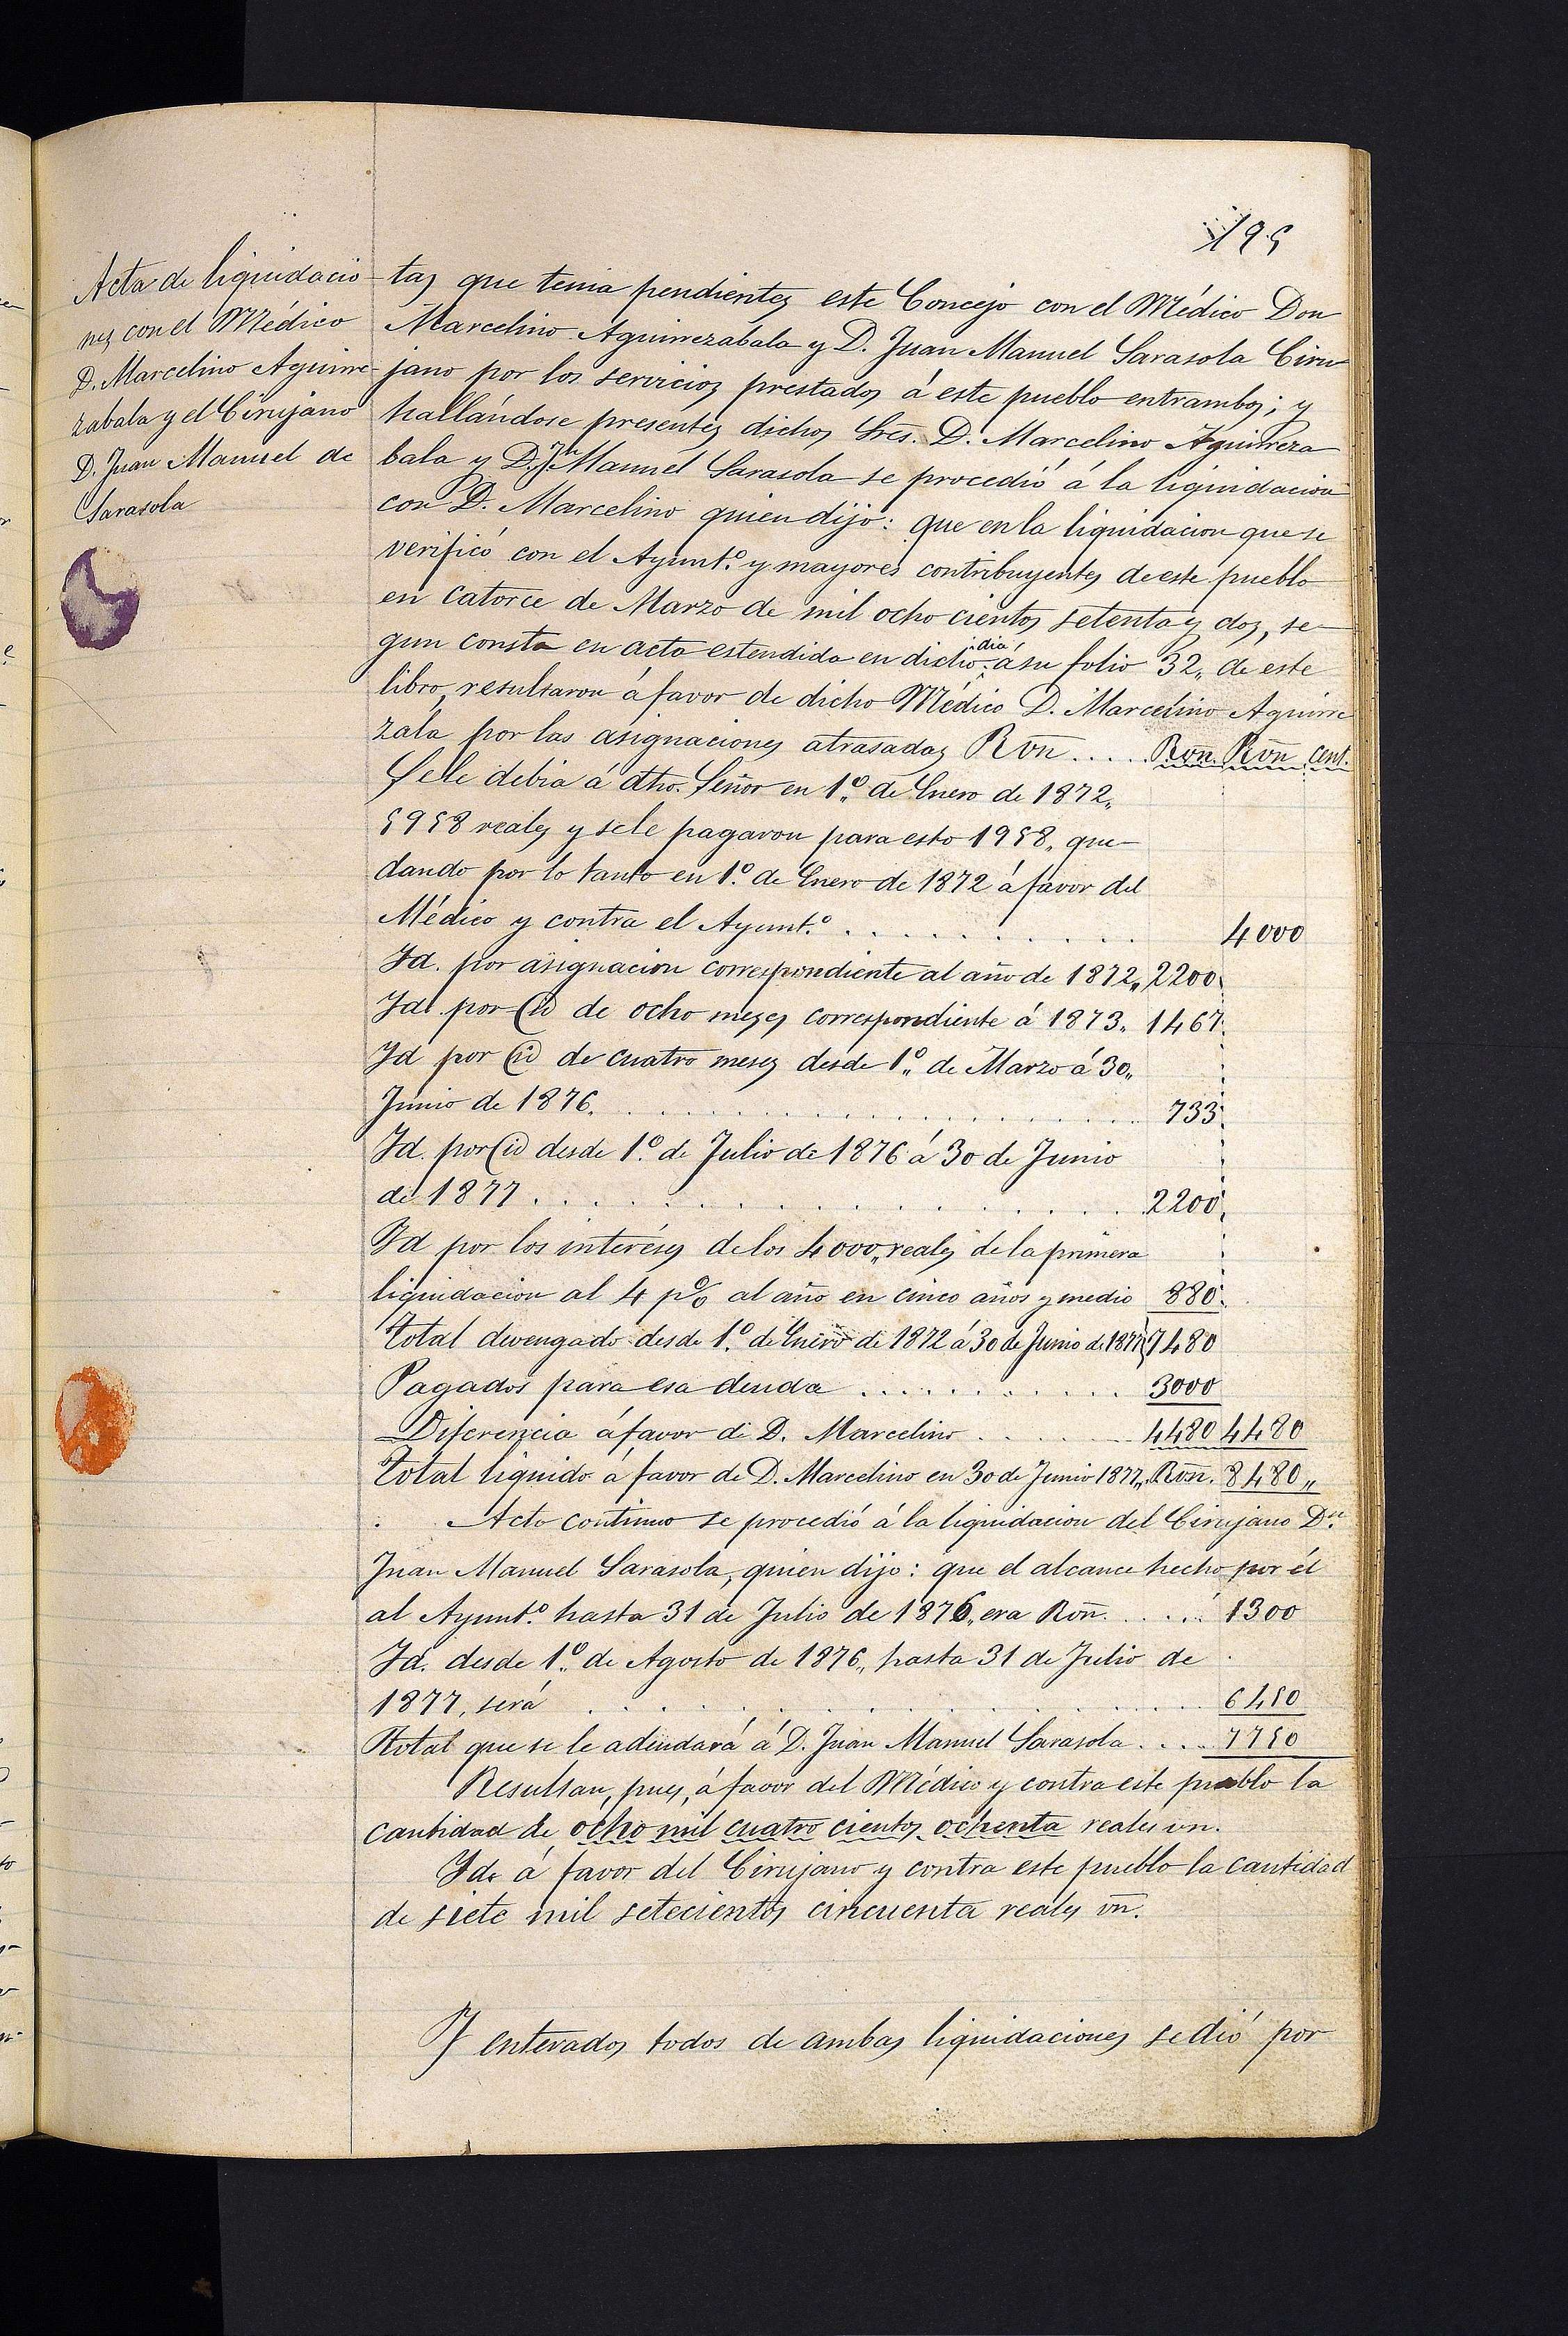 195
Acta de liquidacio-
nes con el Médico
D. Marcelino Aguirre-
zabala y el Cirujano
D. Juan Manuel de
Sarasola
tas que tenia pendientes este Concejo con el Médico Don
Marcelino Aguirrezabala y D. Juan Manuel Sarasola Ciru
jano por los servicios prestados á este pueblo entrambos; y
hallándose presentes dichos Sres. D. Marcelino Aguirreza
bala y D. Jn Manuel Sarasola se procedió á la liquidacion
con D. Marcelino quien dijo: que en la liquidacion que se
verificó con el Ayunt.º y mayores contribuyentes de este pueblo
en catorce de Marzo de mil ocho cientos setenta y dos, se-
gun consta en acta estendida en dicho dia á su folio 32,, de este
libro, resultaron á favor de dicho Médico D. Marcelino Aguirre
zala por las asignaciones atrasadas Rvn ..... Rvn. Rvn cent.
Se le debia á dho. Señor en 1.º de Enero de 1872,,
5958 reales y se le pagaron para esto 1958,, que-
dando por lo tanto en 1.º de Enero de 1872 á favor del
Médico y contra el Ayunt.º . . . . . . . . . . 4000
Id. por asignacion correspondiente al año de 1872,, 2200
Id. por (id) de ocho meses correspondiente á 1873,, 1467
Id por (id) de cuatro meses desde 1.º de Marzo á 30,,
Junio de 1876. . . . . . . . . . . . . . 733
Id. por (id) desde 1.º de Julio de 1876 á 30 de Junio
de 1877 . . . . . . . . . . . . . . . 2200
Id por los intereses de los 4000,, reales de la primera
liquidacion al 4 pº/o al año en cinco años y medio 880
Total devengado desde 1.º de Enero de 1872 á 30 de Junio de 1877 7480
Pagados para esa deuda . . . . . . . . . . 3000
Diferencia á favor de D. Marcelino . . . . . . 4480 4480
Total liquido á favor de D. Marcelino en 30 de Junio 1877,, Rvn. 8480,,
Acto continuo se procedió á la liquidacion del Cirujano Dn
Juan Manuel Sarasola, quien dijo: que el alcance hecho por él
al Ayunt.º hasta 31 de Julio de 1876,, era Rvn. ..... 1300
Id. desde 1.º de Agosto de 1876,, hasta 31 de Julio de
1877, será . . . . . . . . . . . . . 6450
Total que se le adeudará á D. Juan Manuel Sarasola .... 7750
Resultan, pues, á favor del Médico y contra este pueblo la
cantidad de ocho mil cuatro cientos ochenta reales vn.
Id. á favor del Cirujano y contra este pueblo la cantidad
de siete mil setecientos cincuenta reales vn.
Y enterados todos de ambas liquidaciones se dió por